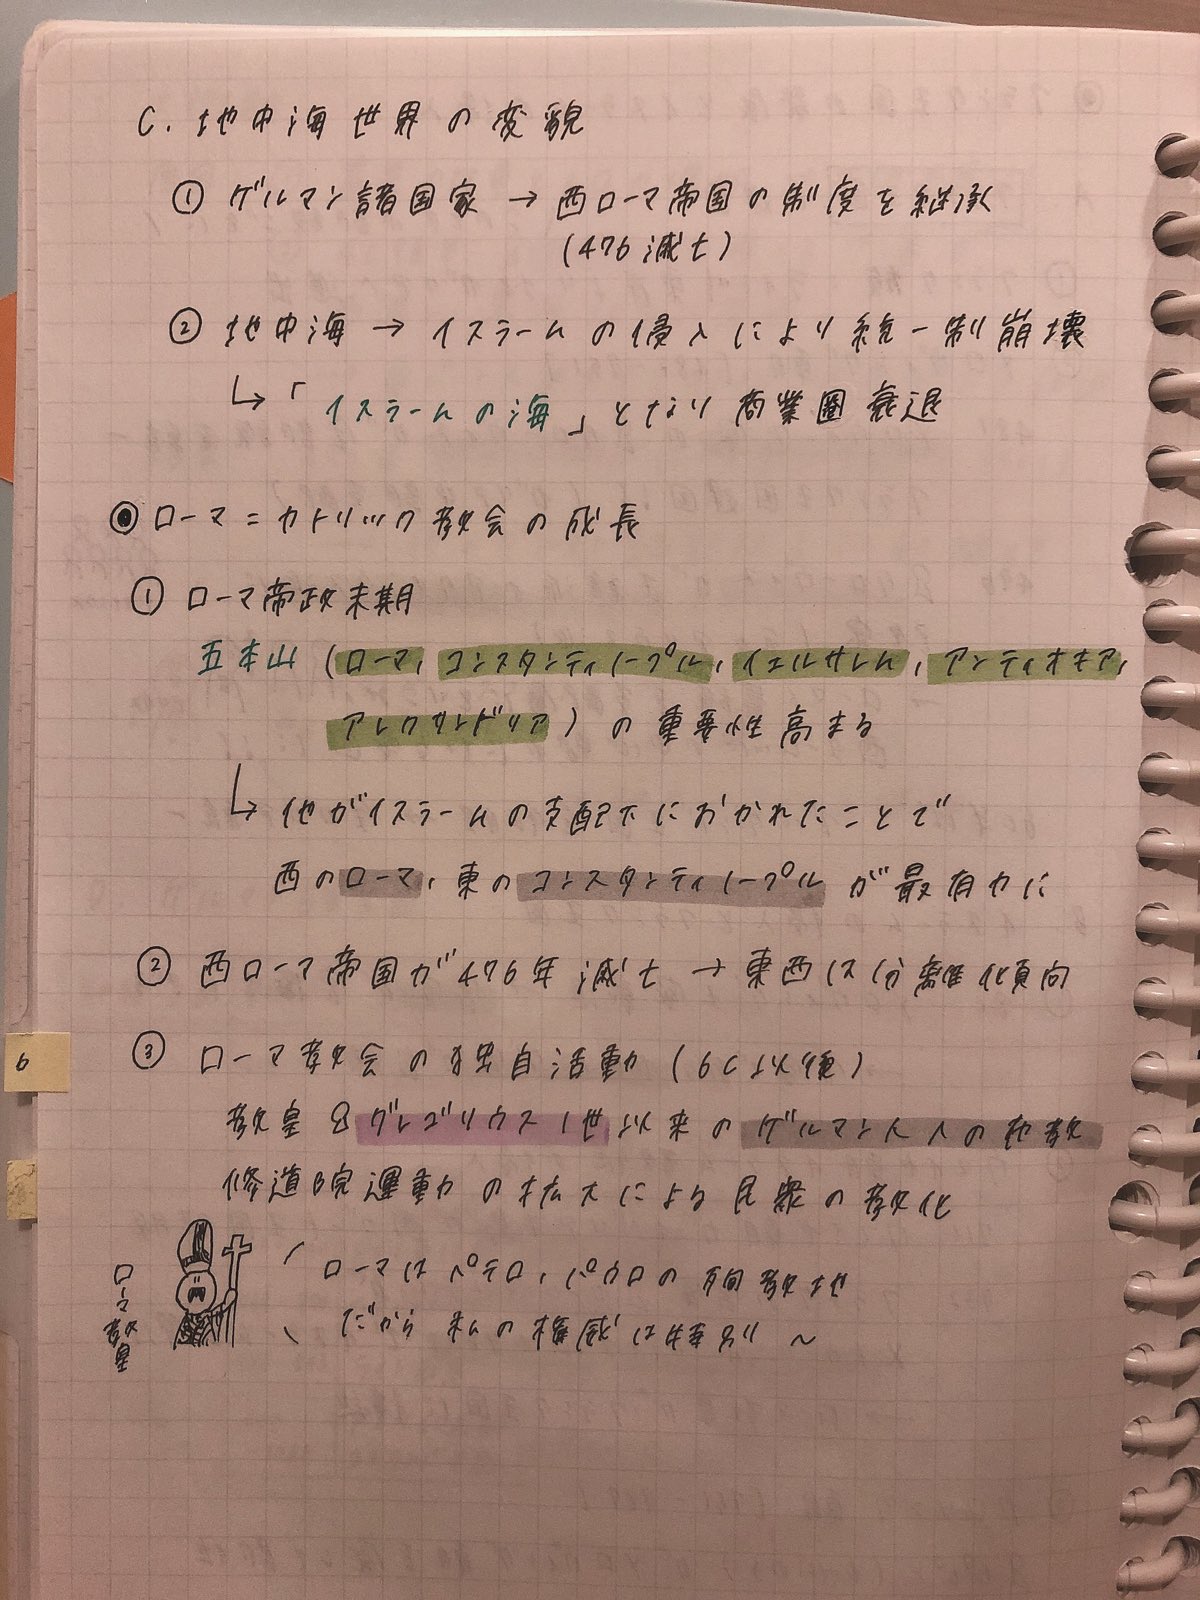 C. 地中海世界の変貌
① ゲルマン諸国家 → 西ローマ帝国の制度を継承
(476滅亡)
② 地中海 → イスラームの侵入により統一制崩壊
↳「イスラームの海」となり商業圏衰退
◉ ローマ=カトリック教会の成長
① ローマ帝政末期
五本山 (ローマ, コンスタンティノープル, イェルサレム, アンティオキア,
アレクサンドリア) の重要性高まる
↳ 他がイスラームの支配下におかれたことで
西のローマ, 東のコンスタンティノープルが最有力に
② 西ローマ帝国が476年滅亡 → 東西は分離化傾向
③ ローマ教会の独自活動 (6C以後)
教皇 グレゴリウス1世以来のゲルマン人への布教
修道院運動の拡大による民衆の教化
ローマはペテロ, パウロの殉教地
だから私の権威は特別〜
ローマ教皇
6